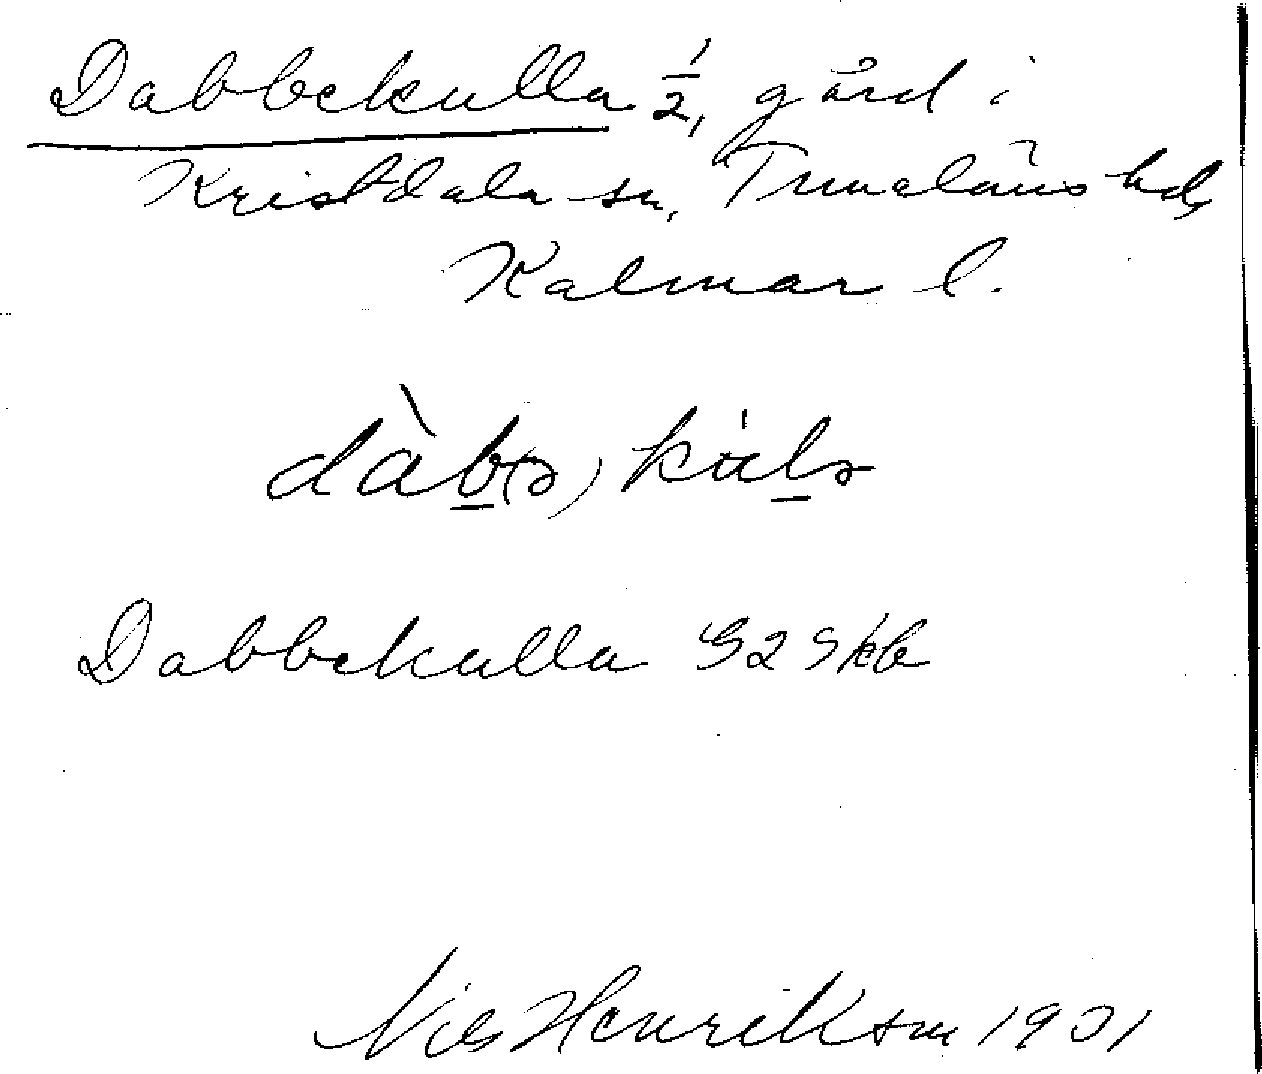 Dabbekulla 1/2, gård i
Kristdala sn, Tunaläns hd,
Kalmar l.
dàb(ə) kulə
Dabbekulla G2 Skb
Nils Henriksson 1901